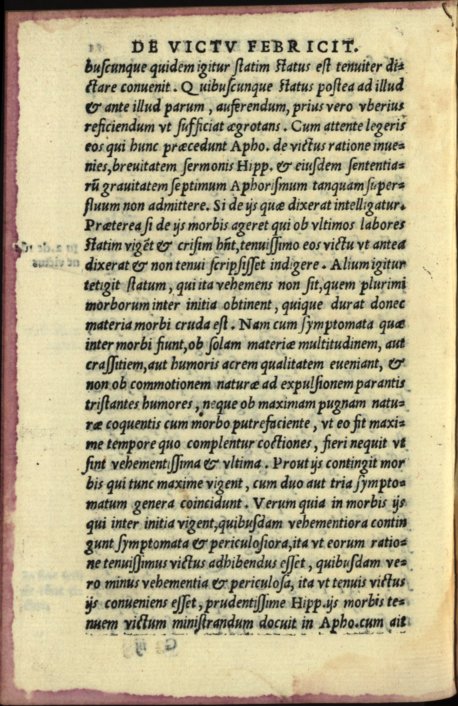 DE VICTV FEBRICIT.
buscunque quidem igitur statim status est tenuiter di=
ctare conuenit. Quibuscunque status postea ad illud
& ante illud parum, auferendum, prius vero vberius
reficiendum vt sufficiat ægrotans. Cum attente legeris
eos qui hunc præcedunt Apho. de victus ratione inue=
nies, breuitatem sermonis Hipp. & eiusdem sententia=
rū grauitatem septimum Aphorismum tanquam super=
fluum non admittere. Si de ijs quæ dixerat intelligatur.
Præterea si de ijs morbis ageret qui ob vltimos labores
statim vigēt & crisim hñt, tenuissimo eos victu vt antea
dixerat & non tenui scripsisset indigere. Alium igitur
tetigit statum, qui ita vehemens non sit, quem plurimi
morborum inter initia obtinent, quique durat donec
materia morbi cruda est. Nam cum symptomata quæ
inter morbi fiunt, ob solam materiæ multitudinem, aut
crassitiem, aut humoris acrem qualitatem eueniant, &
non ob commotionem naturæ ad expulsionem parantis
tristantes humores, neque ob maximam pugnam natu=
ræ coquentis cum morbo putrefaciente, vt eo fit maxi=
me tempore quo complentur coctiones, fieri nequit vt
sint vehementissima & vltima. Prout ijs contingit mor
bis qui tunc maxime vigent, cum duo aut tria sympto=
matum genera coincidunt. Verum quia in morbis ijs
qui inter initia vigent, quibusdam vehementiora contin
gunt symptomata & periculosiora, ita vt eorum ratio=
ne tenuissimus victus adhibendus esset, quibusdam ve=
ro minus vehementia & periculosa, ita vt tenuis victus
ijs conueniens esset, prudentissime Hipp. ijs morbis te=
nuem victum ministrandum docuit in Apho. cum ait